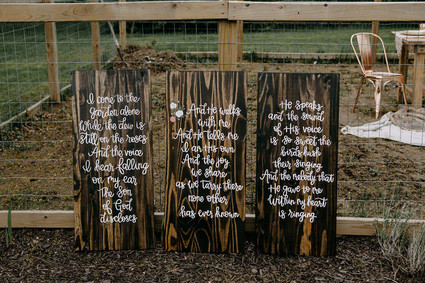 I come to the
garden alone
While the dew is
still on the roses
And the voice
I hear falling
on my ear
The Son
of God
discloses
And He walks
with me
And He tells me
I am His own
And the joy
we share
as we tarry there
none other
has ever known
He speaks
and the sound
of His voice
is so sweet the
birds hush
their singing
And the melody that
He gave to me
Within my heart
is ringing